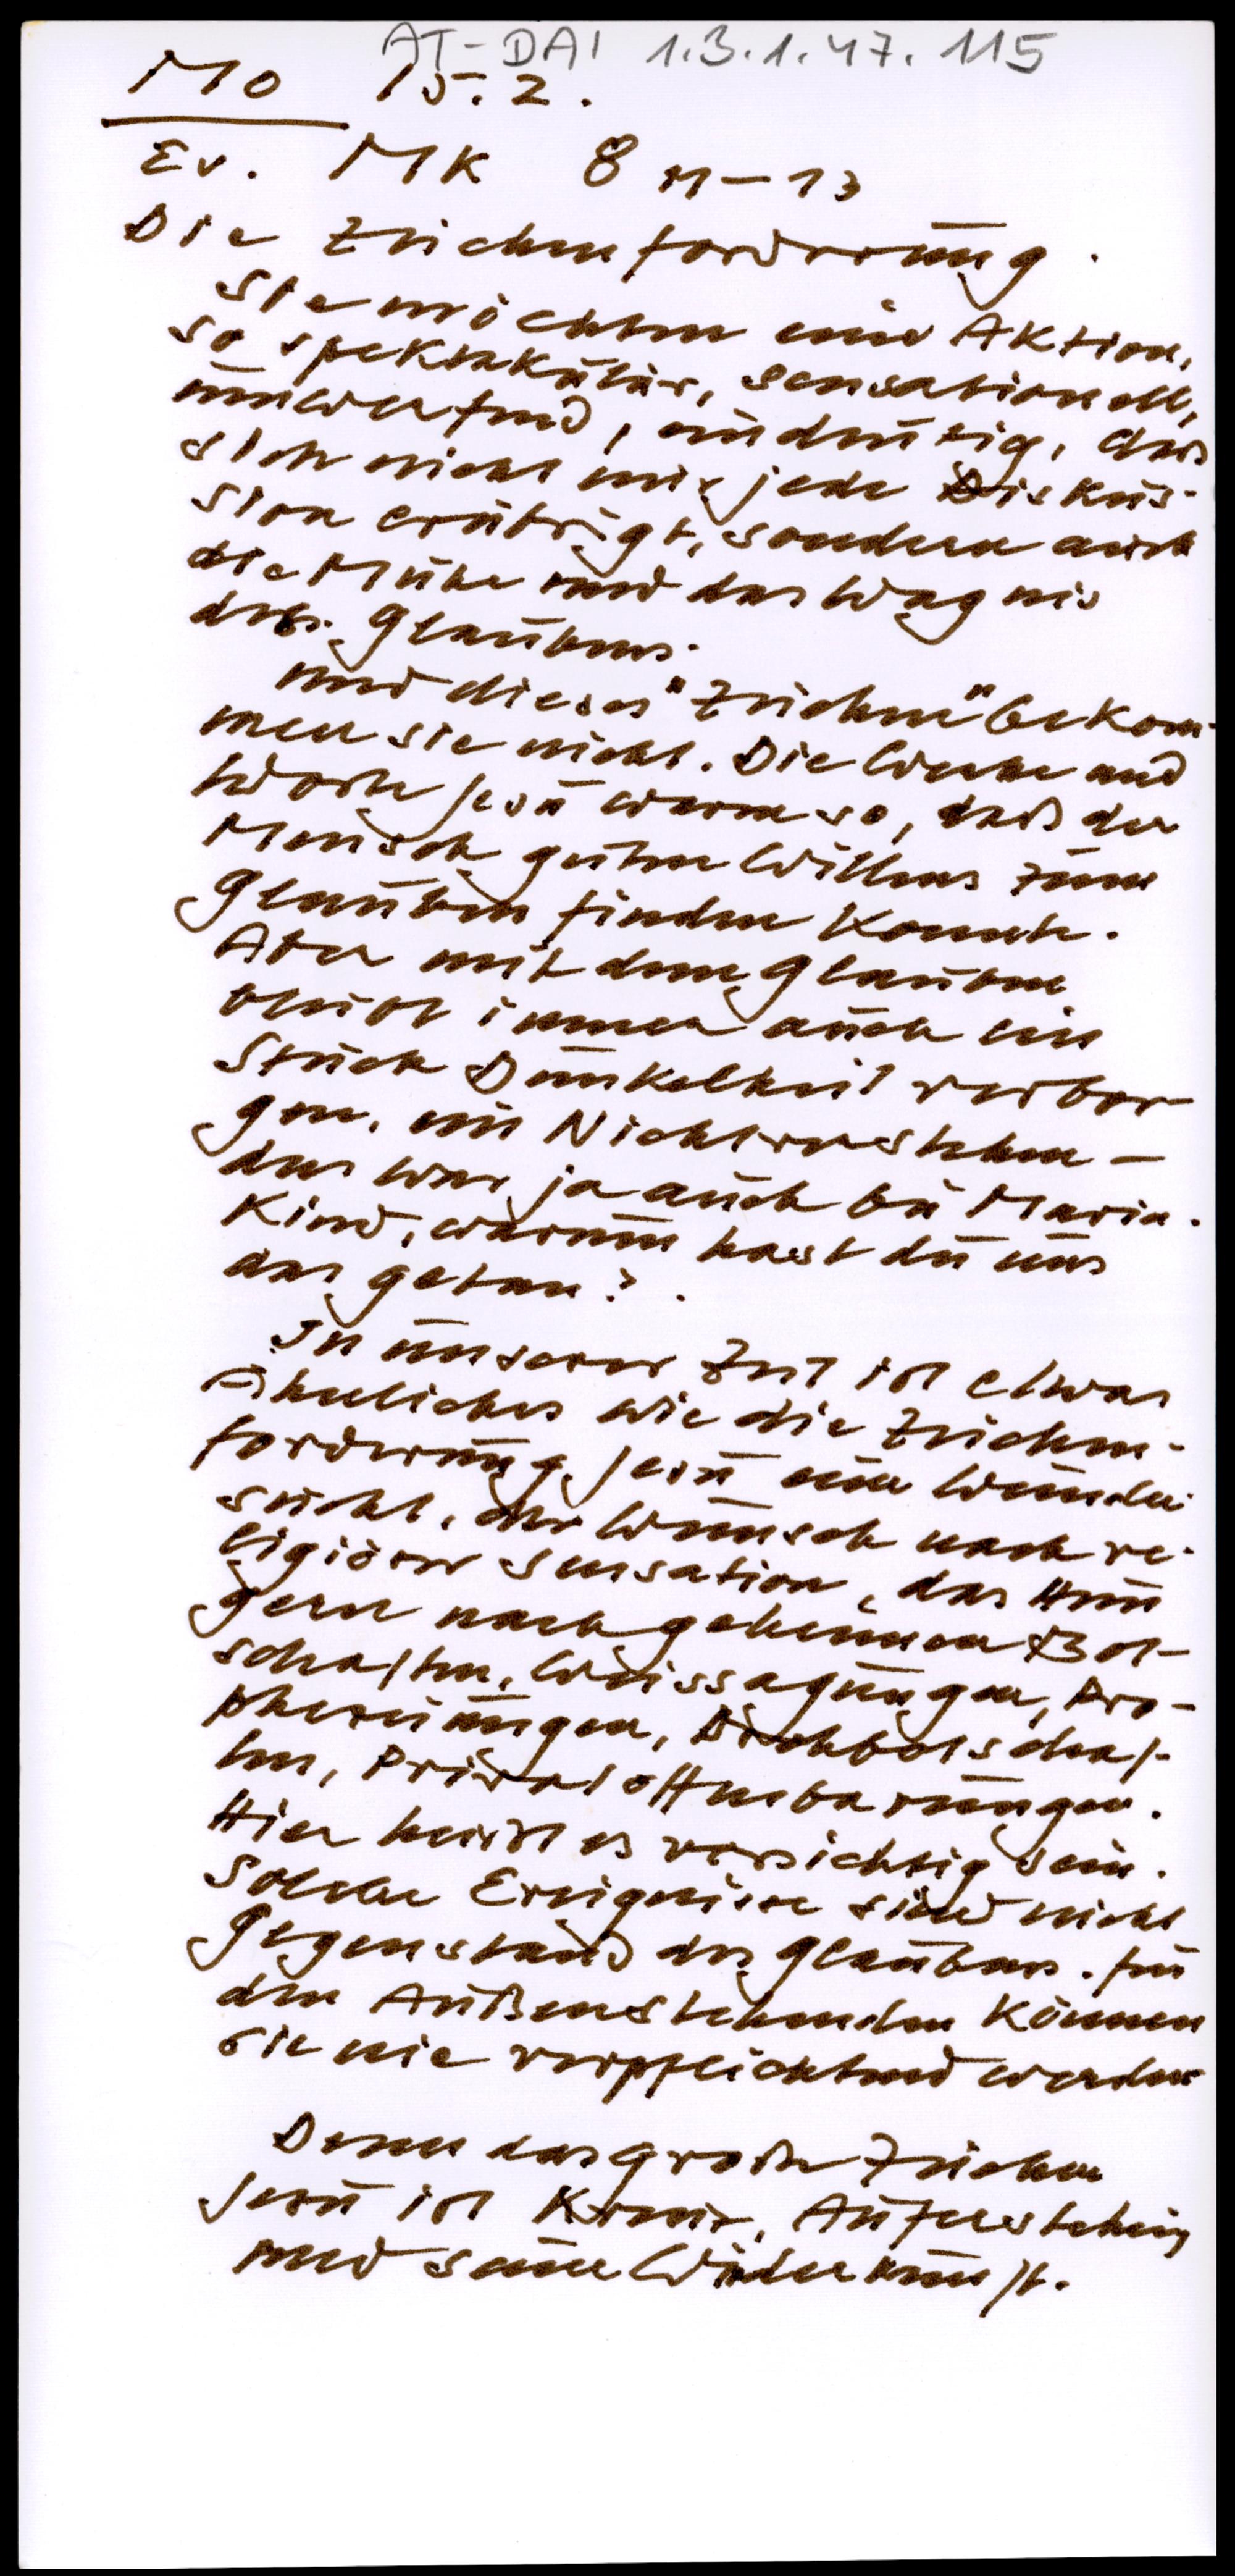 AT-DAI 1.3.1.47.115
Mo 15.2.
Ev. MK 8 11-13
Die Zeichenforderung.
Sie möchten eine Aktion,
so spektakulär, sensationell,
umwerfend, eindeutig, daß
sich nicht nur jede Diskus-
sion erübrigt, sondern auch
die Mühe und das Wagnis
des Glaubens.
Und dieses "Zeichen" bekom-
men sie nicht. Die Werke und
Worte Jesu waren so, daß der
Mensch guten Willens zum
Glauben finden konnte.
Aber mit dem Glauben
bleibt immer auch ein
Stück Dunkelheit verbor-
gen, ein Nichtverstehen -
das war ja auch bei Maria.
Kind, warum hast du uns
das getan?.
In unserer Zeit ist etwas
Ähnliches wie die Zeichen-
forderung Jesu eine Wunder-
sucht, der Wunsch nach re-
ligiöser Sensation, das Hun
gern nach geheimen Bot-
schaften, Weissagungen, Pro-
phezeiungen, Drohbotschaf-
ten, Privatoffenbarungen.
Hier heißt es vorsichtig sein.
Solche Ereignisse sind nicht
Gegenstand des Glaubens. Für
den Außenstehenden können
sie nie verpflichtend werden
Denn das große Zeichen
Jesu ist Kreuz, Auferstehung
und seine Wiederkunft.